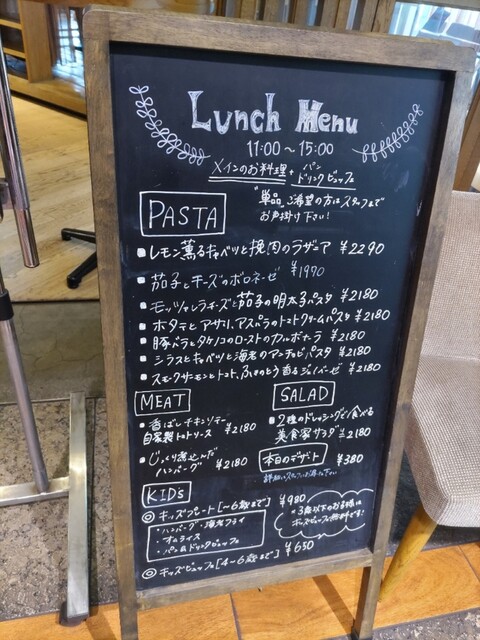 Lunch Menu
11:00〜15:00
メインのお料理 + パン ドリンクビュッフェ
"単品"ご希望の方はスタッフまで
お声掛け下さい!
PASTA
■レモン薫るキャベツと挽肉のラザーア ¥2290
■茄子とチーズのボロネーゼ ¥1970
■モッツァレラチーズと茄子の明太子パスタ ¥2180
■ホタテとアサリ、アスパラのトマトクリームパスタ ¥2180
■豚バラとタケノコのローストのカルボナーラ ¥2180
■シラスとキャベツと海老のアーチョビパスタ ¥2180
■スモークサーモンとトマト、ふきのとう香るジェノベーゼ ¥2180
MEAT
■香ばしチキンソテー
自家製トマトソース ¥2180
■じっくり煮込んだ
ハンバーグ ¥2180
SALAD
■2種のドレッシングで食べる
美食家サラダ ¥2180
本日のデザート ¥380
詳細はスタッフにお尋ね下さい
KIDs
◎キッズプレート[〜6歳まで] ¥980
・ハンバーグ・海老フライ
・オムライス
・パン&ドリンクビュッフェ
"3歳以下のお子様は
キッズビュッフェ無料です!
◎キッズビュッフェ[4〜6歳まで] ¥650